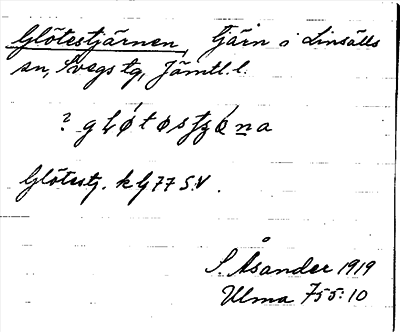 Glötestjärnen, tjärn i Linsälls
sn, Svegs tg, Jämtl. l.
? gløtøstzøna
Glötestj. k bj 77 S.V.
S. Åsander 1919
Ulma 755:10